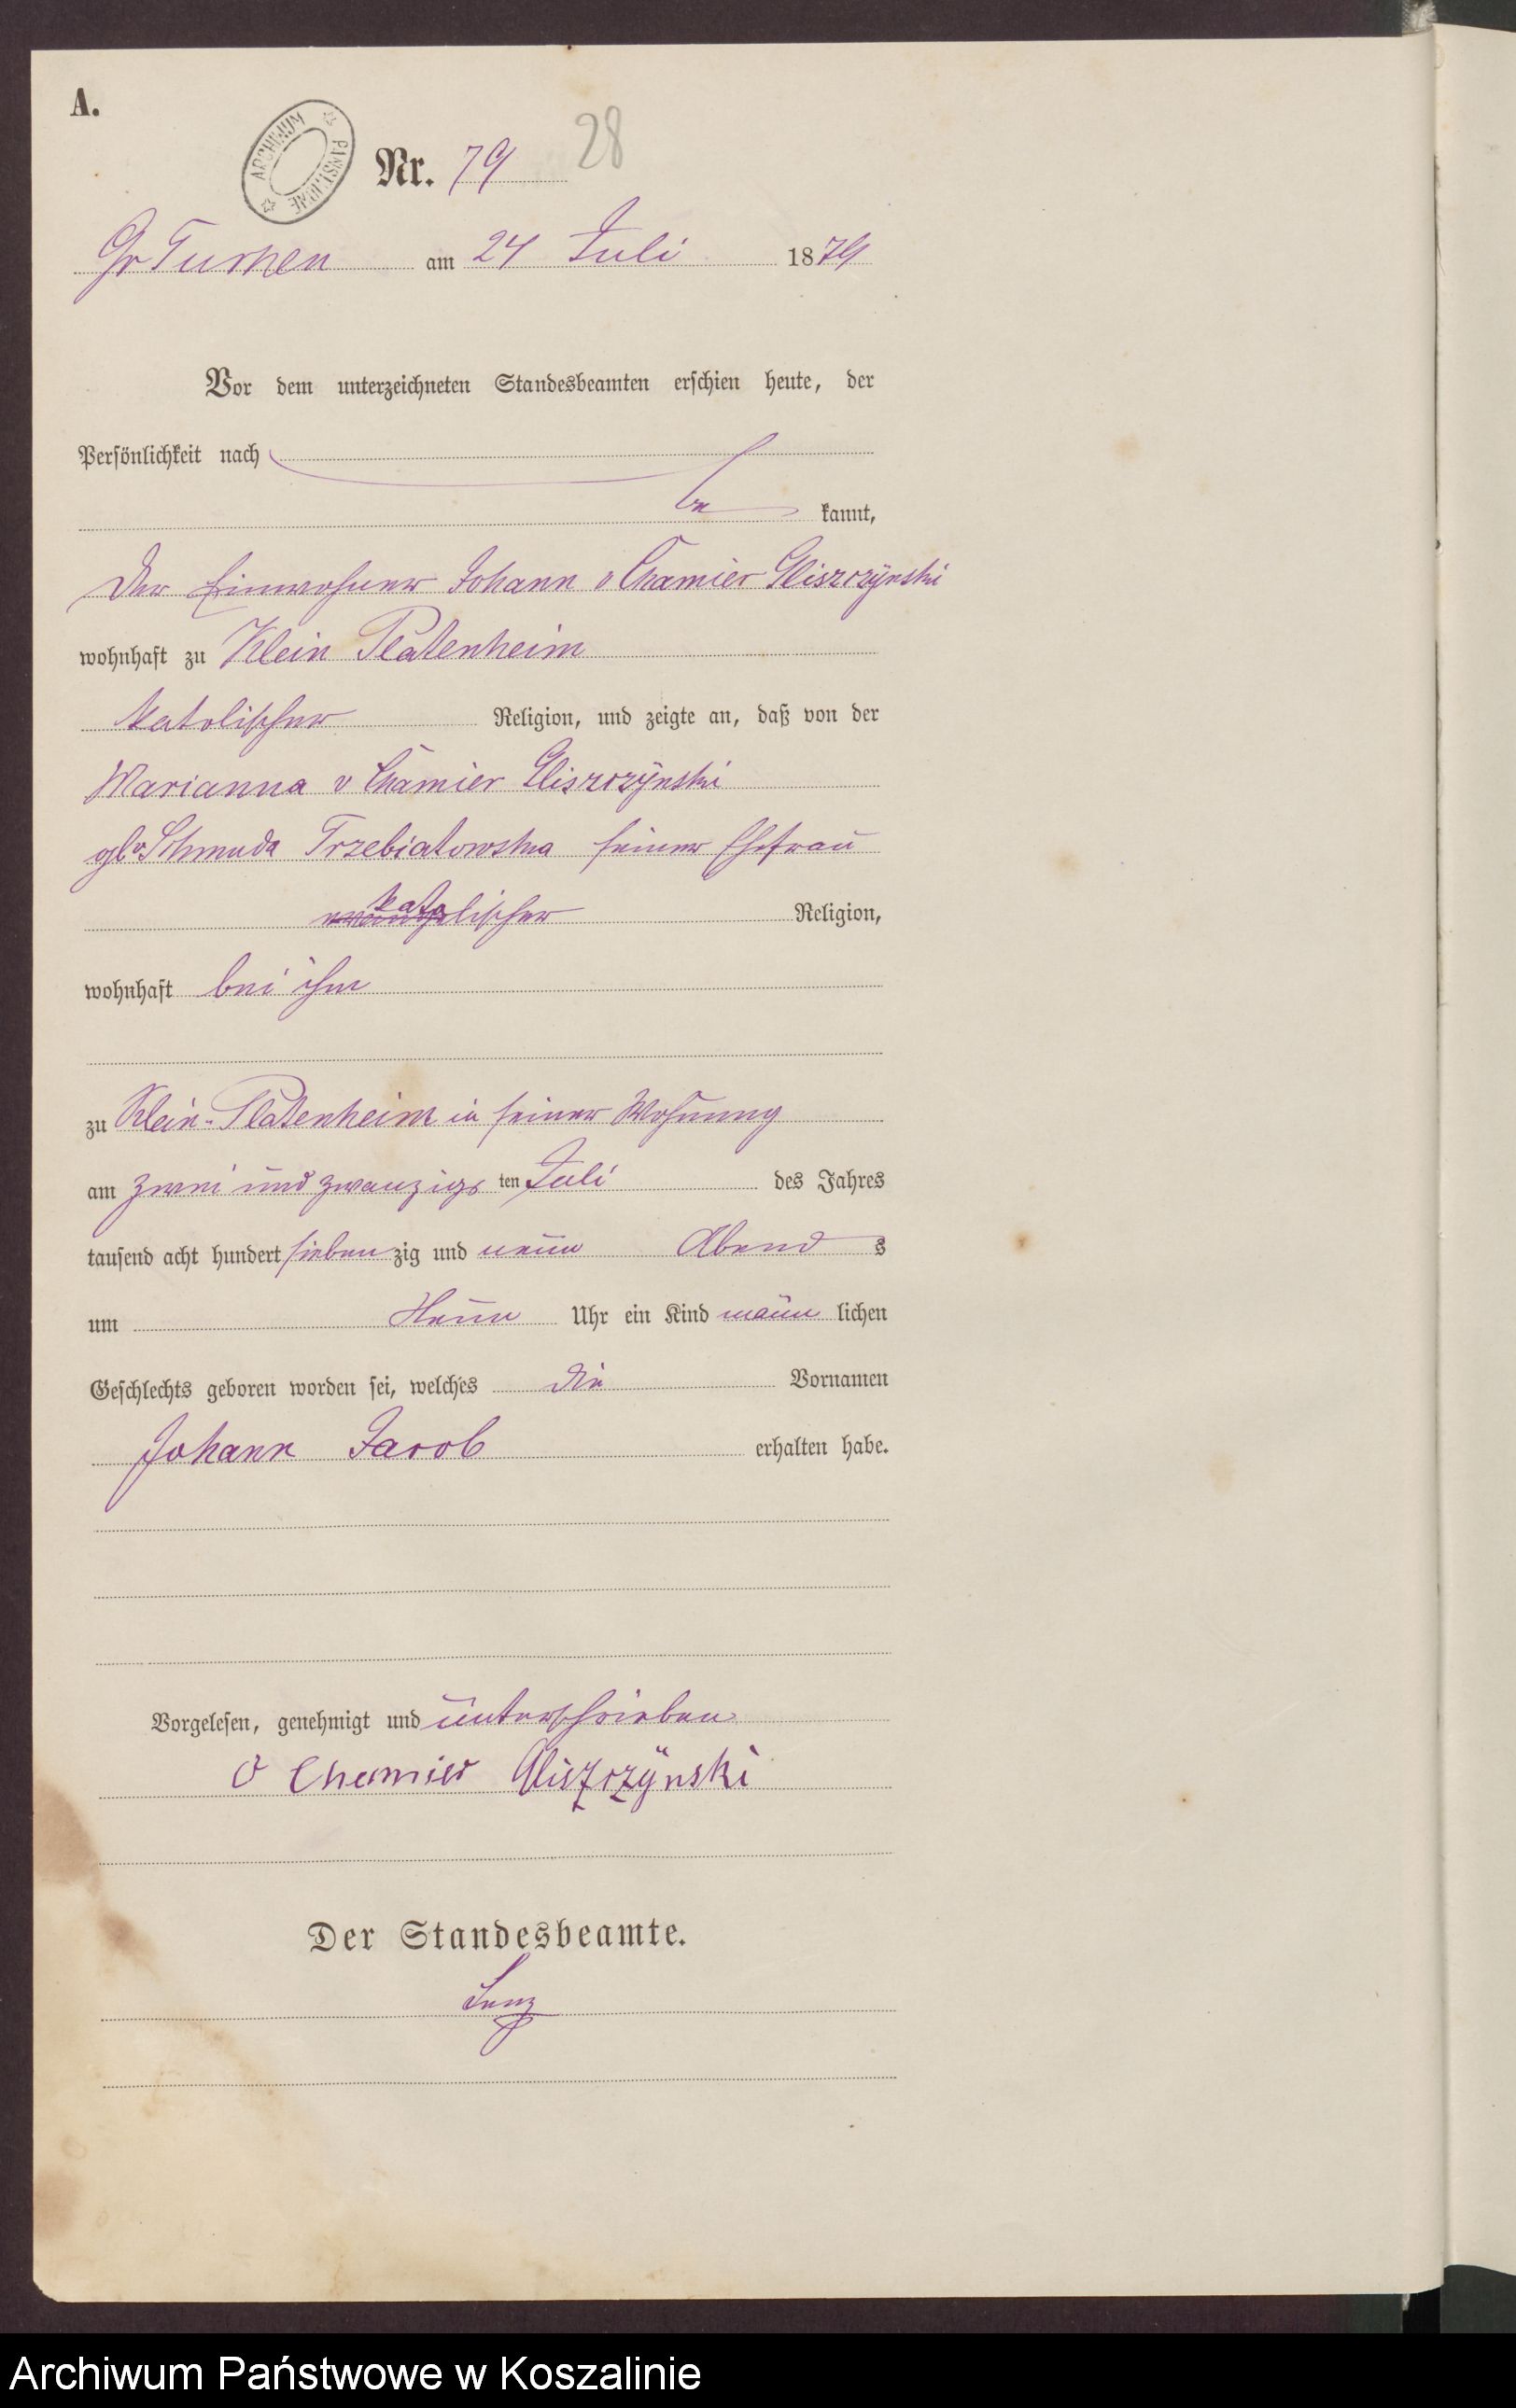 A.
ARCHIWUM PAŃSTWOWE
Nr. 79 28
Gr Tuchen am 24 Juli 1879
Vor dem unterzeichneten Standesbeamten erschien heute, der
Persönlichkeit nach
be kannt,
Der Einwohner Johann v Chamier Gliszczÿnski
wohnhaft zu Klein Platenheim
katolischer Religion, und zeigte an, daß von der
Marianna v Chamier Gliszczÿnski
gb v Schmuda Trzebiatowska seiner Ehefrau
katolischer Religion,
wohnhaft bei ihm
zu Klein-Platenheim in seiner Wohnung
am zwei und zwanzigs ten Juli des Jahres
tausend acht hundert sieben zig und neun Abend s
um Neun Uhr ein Kind männ lichen
Geschlechts geboren worden sei, welches die Vornamen
Johann Jacob erhalten habe.
Vorgelesen, genehmigt und unterschrieben
v Chamier Gliszczÿnski
Der Standesbeamte.
Archiwum Państwowe w Koszalinie